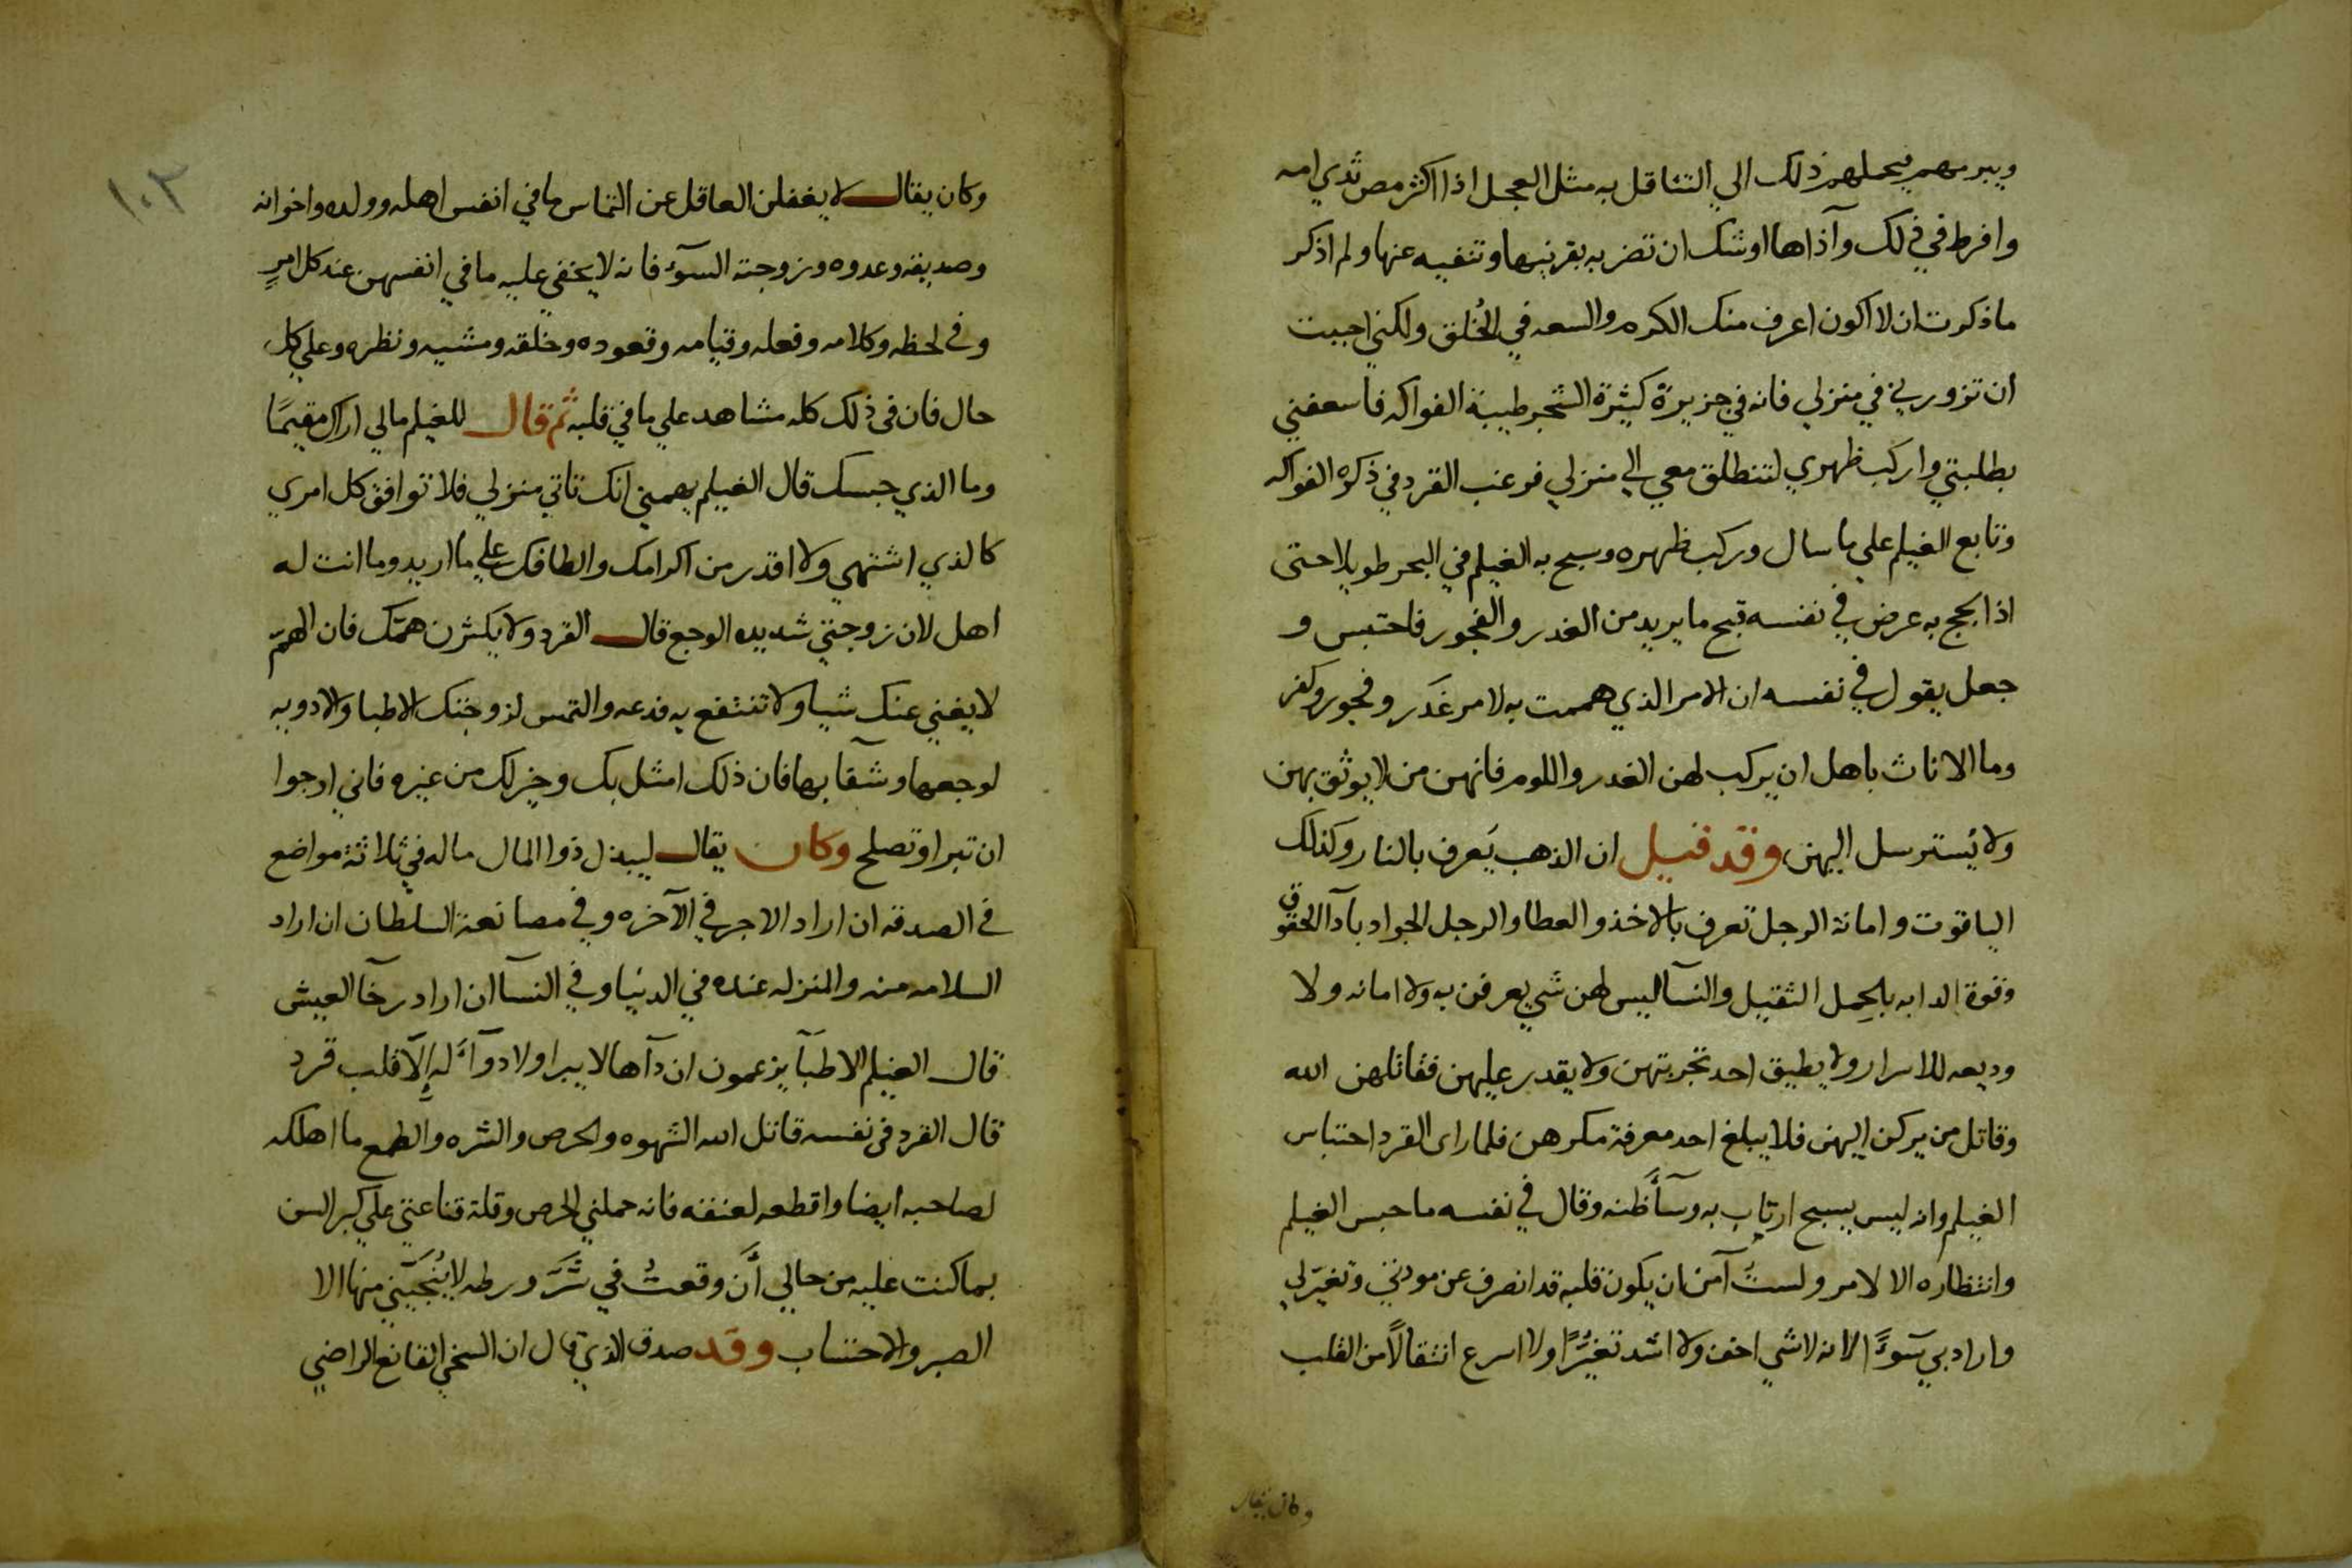 ويبرمهم فيحملهم ذلك الي التثاقل به مثل العجل اذا اكثر مص ثدي امه
وافرط في ذلك وآذاها اوشك ان تضربه بقرنيها وتنفيه عنها ولم اذكر
ماذكرت ان لا اكون اعرف منك الكرم والسعه في الخُلق ولكني احببت
ان تزورني في منزلي فانه في جزيرة كثيرة الشجر طيبة الفواكه فاسعفني
بطلبتي واركب ظهري لتنطلق معي الي منزلي فرغب القرد في ذكره الفواكه
وتابع الغيلم علي ما سال وركب ظهره وسبح به الغيلم في البحر طويلا حتى
اذا لجج به عرض في نفسه قبح ما يريد من الغدر والفجور فاحتبس و
جعل يقول في نفسه ان الامر الذي هممت به لامر غَدَر وفجور وكفر
وما الاناث باهل ان يركب لهن الغدر واللوم فانهن من لا يوثق بهن
ولا يُسترسل اليهن وقد قيل ان الذهب يَعرف بالنار وكذلك
الياقوت وامانة الرجل تعرف بالاخذ والعطا والرجل الجواد بآدآ الحقوق
وقوة الدابه بالحِمل الثقيل والنسآ ليس لهن شي يعرفن به ولا امانه ولا
وديعه للاسرار ولا يطيق احد تجربتهن ولا يقدر عليهن فقاتلهن الله
وقاتل من يركن اليهن فلا يبلغ احد معرفة مكرهن فلما راى القرد احتباس
الغيلم وانه ليس يسبح ارتاب به وسآأَ ظنه وقال في نفسه ما حبس الغيلم
وانتظاره الا لامر ولستُ آمن ان يكون قلبه قد انصرف عن مودتي وتغيَر لي
واراد بي سَوءًا الا انه لا شي اخف ولا اشد تغيُّرًا ولا اسرع انتقالًا من القلب
وكان يقال
١٠٣
وكان يقال لا يغفلن العاقل عن التماس ما في انفس اهله وولده واخوانه
وصديقه وعدوه وزوجته السوٓء فانه لا يخفي عليه ما في انفسهن عند كل امرٍ
وفي لحظه وكلامه وفعله وقيامه وقعوده وخلقه ومشيه ونظره وعلي كل
حال فان في ذلك كله مشاهد علي ما في قلبه ثم قال للغيلم مالي اراك مقيمًا
وما الذي حبسك قال الغيلم يهمني انك تاتي منزلي فلا توافق كل امري
كالذي اشتهي ولا اقدر من اكرامك والطافك علي ما اريد وما انت له
اهل لان زوجتي شديده الوجع قال القرد ولا يكثرن همّك فان الهمّ
لا يغني عنك شيا ولا تنتفع به فدعه والتمس لزوجتك الاطبا والادويه
لوجعها وشقآ بها فان ذلك امثل بك وخير لك من غيره فاني ارجوا
ان تبرا وتصلح وكان يقال ليبذل ذوا المال ماله في ثلاثة مواضع
في الصدقه ان اراد الاجر في الآخره وفي مصانعة السلطان ان اراد
السلامه منه والمنزله عنده في الدنيا وفي النسآ ان اراد رخآ العيش
قال الغيلم الاطبآ يزعمون ان دآها لا يبرا ولا دوآءَ له إلّا قلب قرد
قال القرد في نفسه قاتل الله الشهوه والحرص والشره والطمع ما اهلكه
لصاحبه ايضا واقطعه لعنقه فانه حملني الحرص وقلة قناعتي علي كبر السن
بما كنت عليه من حالي أَن وقعتُ في شَرَّ ورطه لا يُنجّيني منها الا
الصبر والاحتساب وقد صدق الذي قال ان السخي القانع الراضي